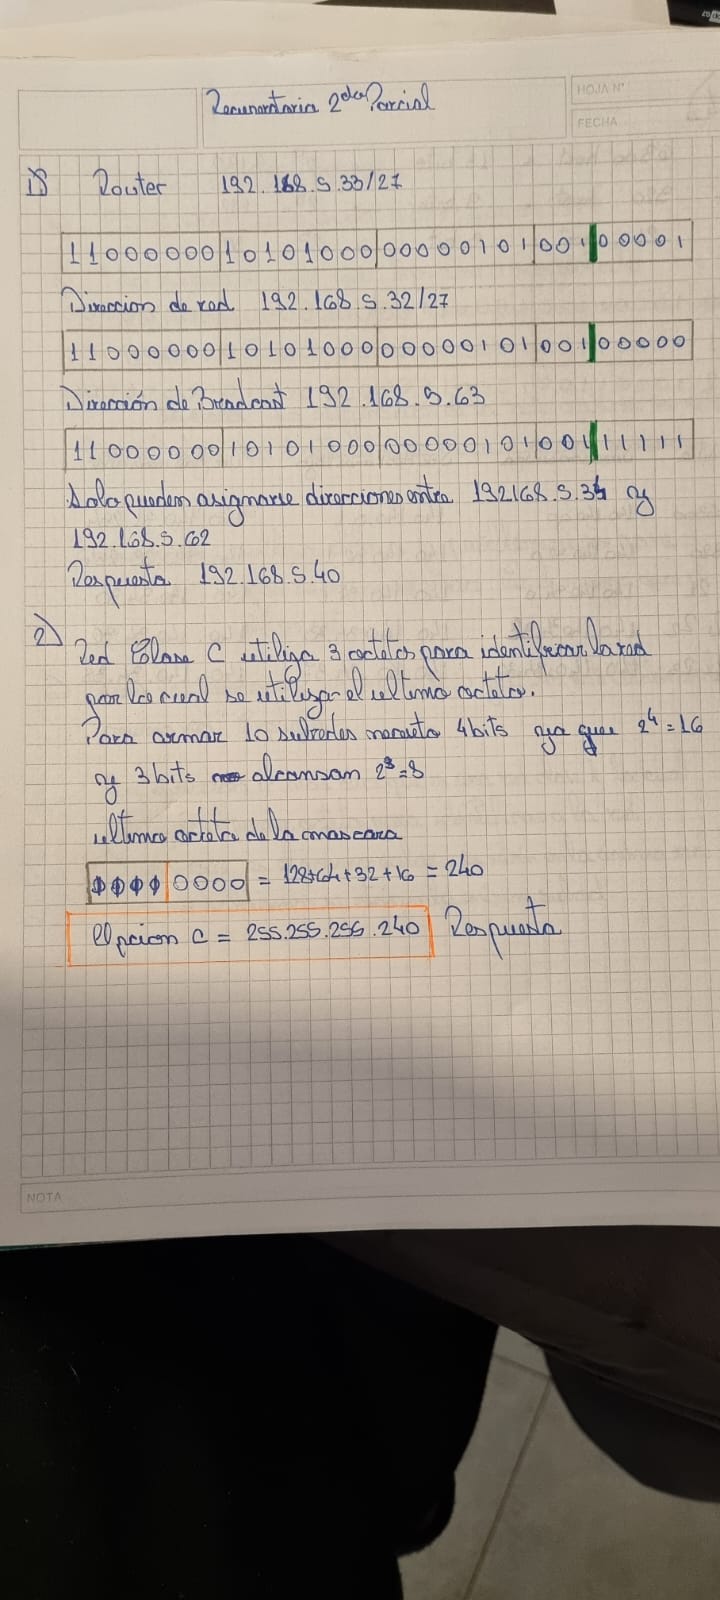 Recuperatorio 2do Parcial
HOJA N°
FECHA
1) Router 192.168.5.33/27
11000000 10101000 00000101 001 00001
Direccion de red 192.168.5.32/27
11000000 10101000 00000101 001 00000
Dirección de Broadcast 192.168.5.63
11000000 10101000 00000101 001 11111
Solo pueden asignarse direcciones entre 192168.5.34 y
192.168.5.62
Respuesta 192.168.5.40
2) Red Clase C utiliza 3 octetos para identificar la red
por lo cual se utilizar el ultimo octeto.
Para armar 10 subredes necesito 4 bits ya que 2^4 = 16
y 3 bits no alcansan 2^3 = 8
ultimo octeto de la mascara
1111 0000 = 128+64+32+16 = 240
Opcion C = 255.255.255.240 Respuesta
NOTA